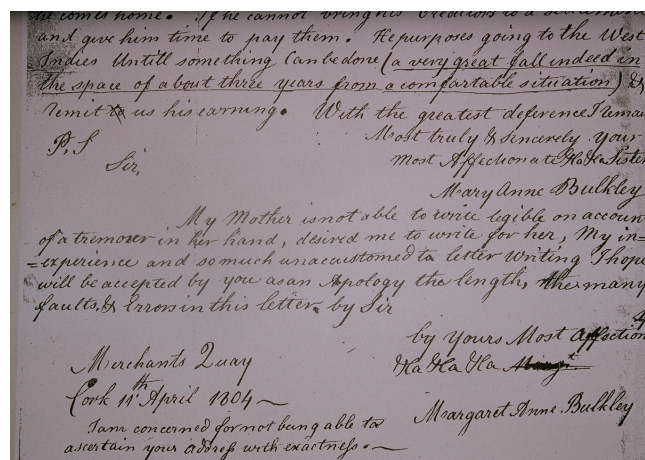 he comes home. If he cannot bring his Creditors to a
and give him time to pay them. He purposes going to the West
Indies Untill something Can be done (a very great fall indeed in
the space of about three years from a comfortable situation) &
remit to us his earning. With the greatest deference I remain
P.S Most truly & sincerely your
Sir, most Affectionate &ca &ca Sister
Mary Anne Bulkley
My Mother is not able to write legible on account
of a tremour in her hand, desired me to write for her, My in=
=experience and so much unaccustomed to letter writing I hope
will be accepted by you as an Apology the length, the many
faults, & Errors in this letter, by Sir
by Yours Most Affection
Merchants Quay &ca &ca &ca
Cork 11th April 1804 —
Margaret Anne Bulkley
I am concerned for not being able to
ascertain your address with exactness. —